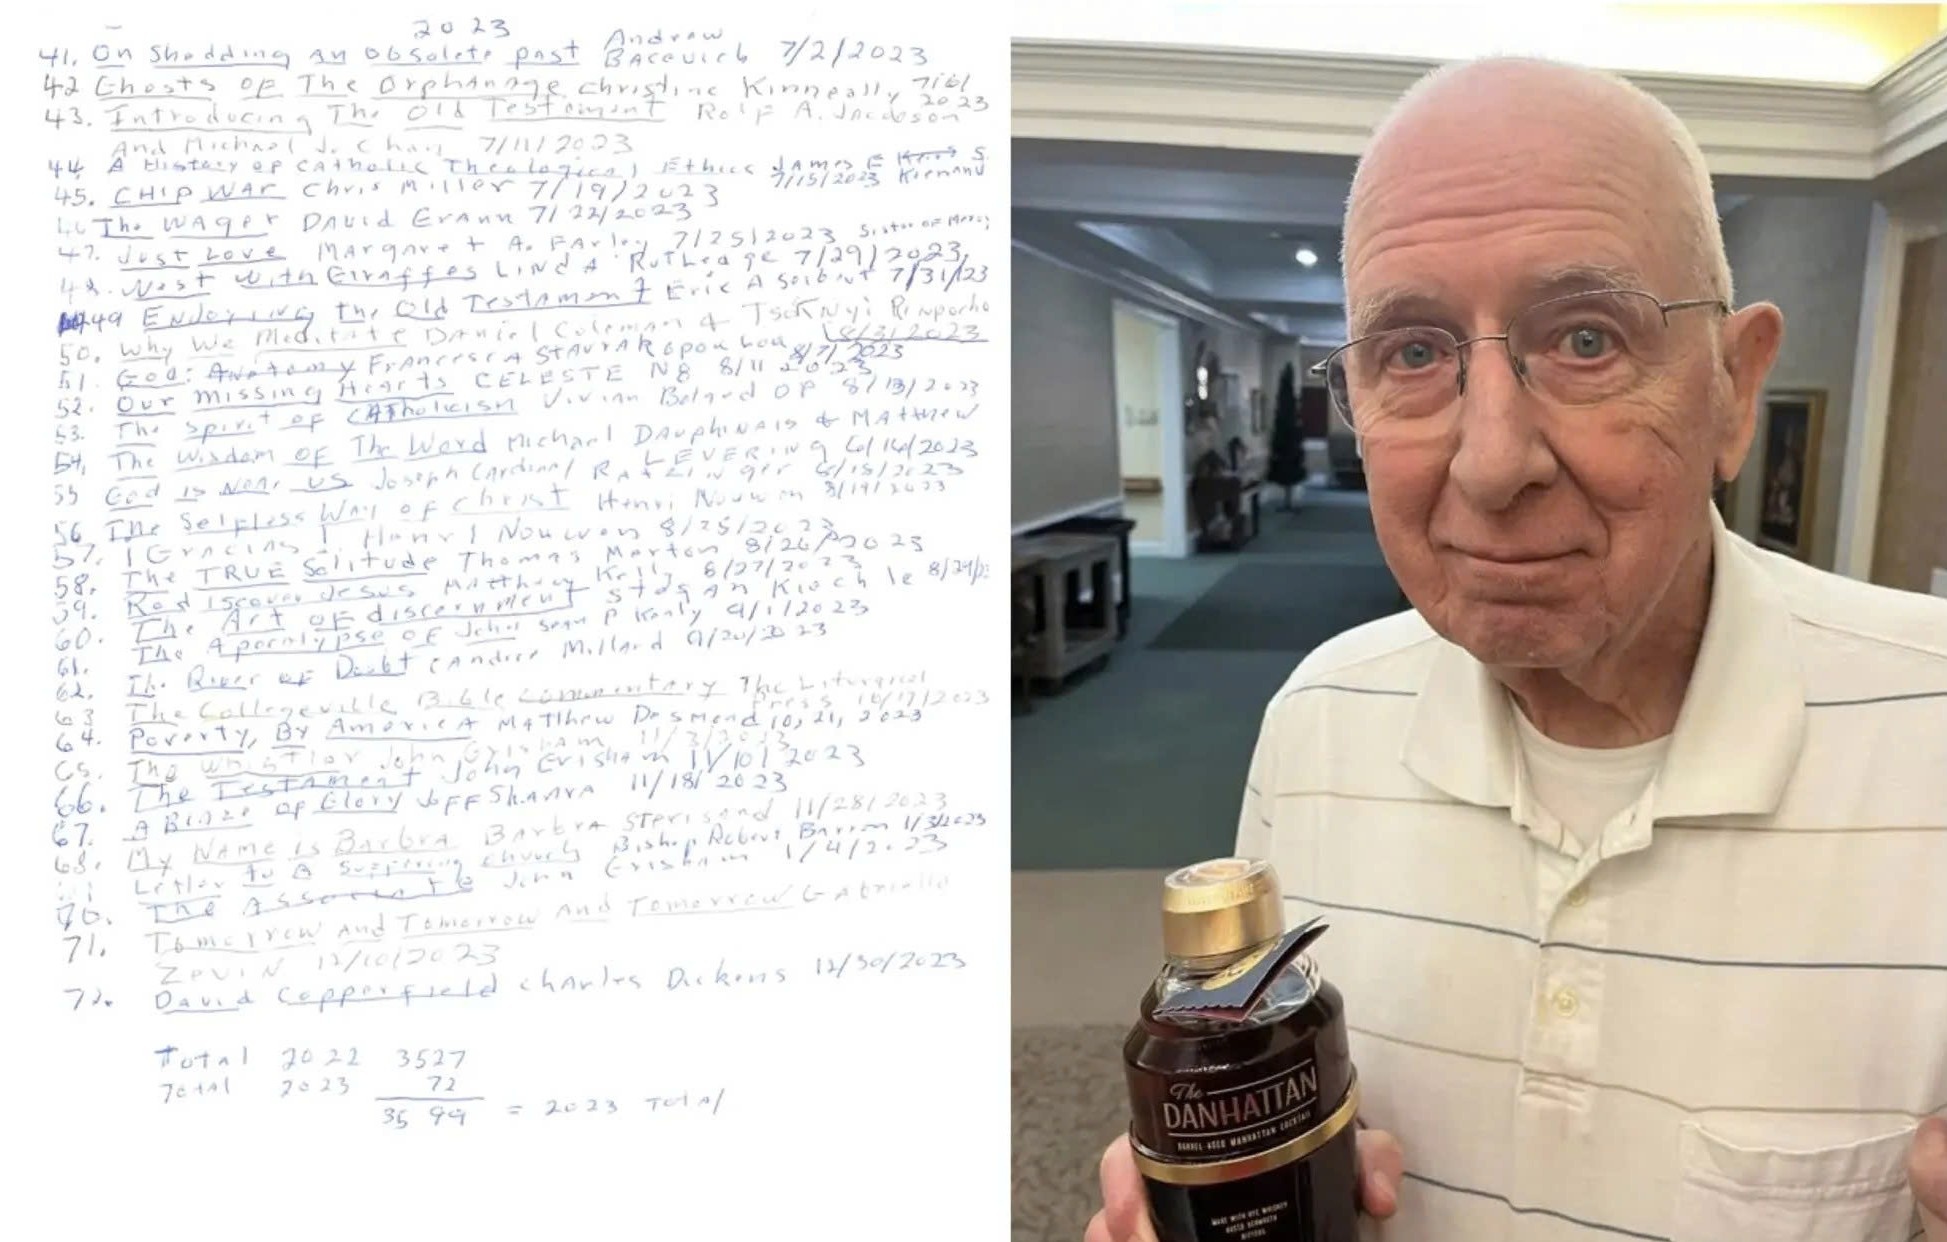 2023
41. On Shedding An Obsolete past Andrew Bacevich 7/2/2023
42 Ghosts OF The Orphanage christine Kenneally 7/6/ 2023
43. Introducing The Old Testament Rolf A. Jacobson
And Michael J. Chan 7/11/2023
44. A History of CAtholic Theological Ethics JAmes F 7/15/2023
45. CHIP WAR Chris Miller 7/19/2023
The WAger DAVID Grann 7/22/2023
47. Just Love MArgaret A. FArley 7/25/2023 Sister of Mercy
48. West With Giraffes LINDA RutLedge 7/29/2023
49 the Old Testament Eric A 7/31/23
50. Why We Meditate Daniel Goleman & 8/3/2023
51. God: Anatomy FrAncescA 8/7/2023
52. Our missing Hearts CELESTE NG 8/11 2023
53. The Spirit of CATholicism Vivian OP 8/13/2023
54. The Wisdom OF The Word Michael DAuphinais & MAtthew
LEVERING
55 God is Near us Joseph CArdinal RATZINger
56. The Selfless Way of Christ Henri Nouwen 8/19/2023
57. Henri Nouwen 8/25/2023
58. The TRUE Solitude Thomas Merton 8/26/2023
59. Rediscover Jesus Matthew Kelly 8/27/2023
60. The Art OF discernment
61. The Apocalypse OF John Sean P 9/1/2023
62. The River OF Doubt CAndice Millard 9/20/2023
63 The Collegeville Bible commentary The Liturgical
Press 10/17/2023
64. Poverty, By AmericA MATThew Desmond 10, 21, 2023
65. The Whistler John Grisham 11/3/2023
66. The Testament John Grisham 11/10/2023
67. A Blaze of Glory JeFF ShAArA 11/18/2023
68. My NAme is BArbrA BArbrA 11/28/2023
Letter to A Suffering church Bishop Robert Barron
70. The Associate John Grisham
71. Tomorrow And Tomorrow And Tomorrow GAbrielle
ZeviN 12/10/2023
72. David Copperfield chArles Dickens 12/30/2023
Total 2022 3527
Total 2023 72
3599 = 2023 ToTal
The
DANHATTAN
BARREL-AGED MANHATTAN COCKTAIL
MADE WITH RYE WHISKEY
BITTERS